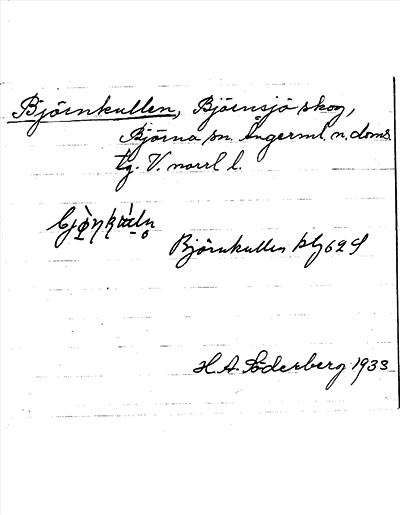 Björnkullen, Björnsjö skog,
Björna sn. Ångerml. n. doms.
tg. V. norrl l.
Björnkullen blz 62 S
H. A. Söderberg 1933